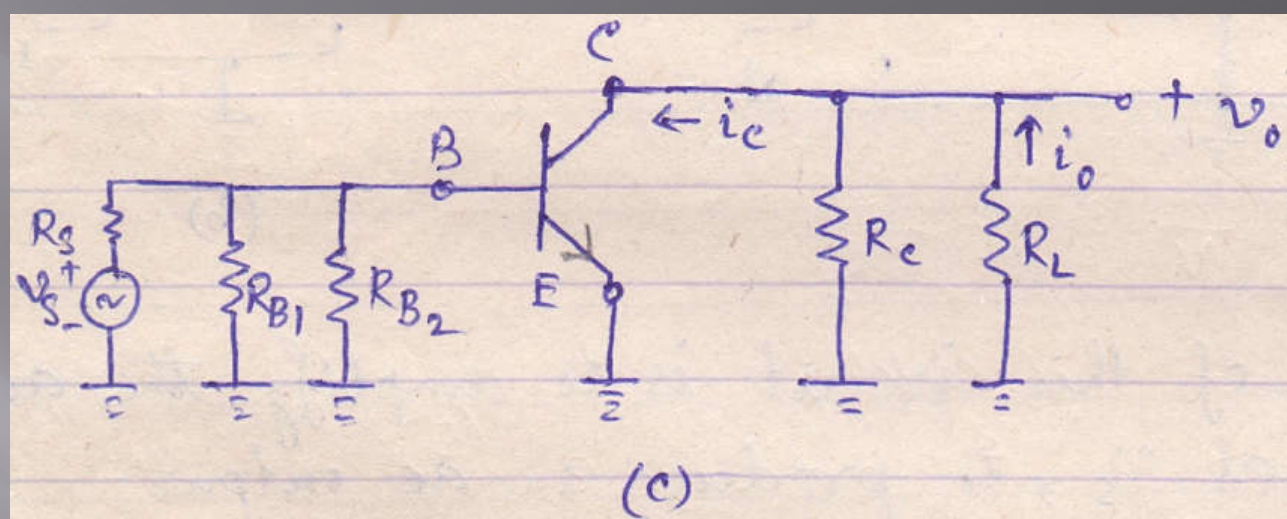 C
← ic + vo
B ↑ io
Rs RB1 RB2 E Rc RL
vs + -
(c)